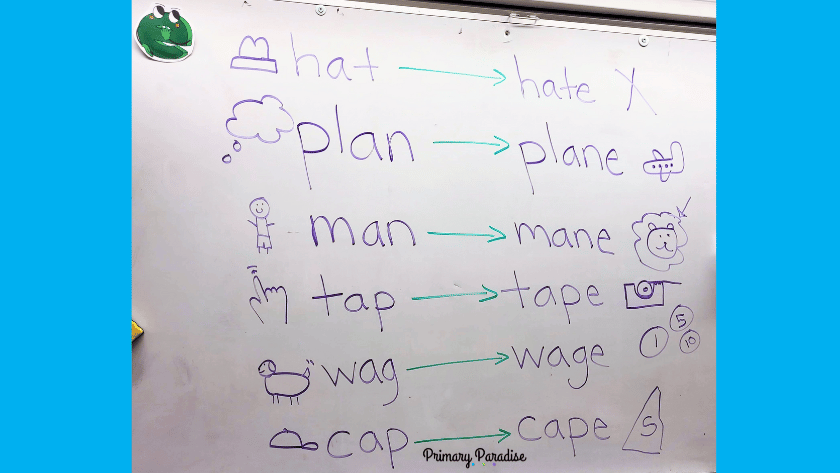 hat → hate X
plan → plane
man → mane
tap → tape
wag → wage 1 5 10
cap → cape S
Primary Paradise